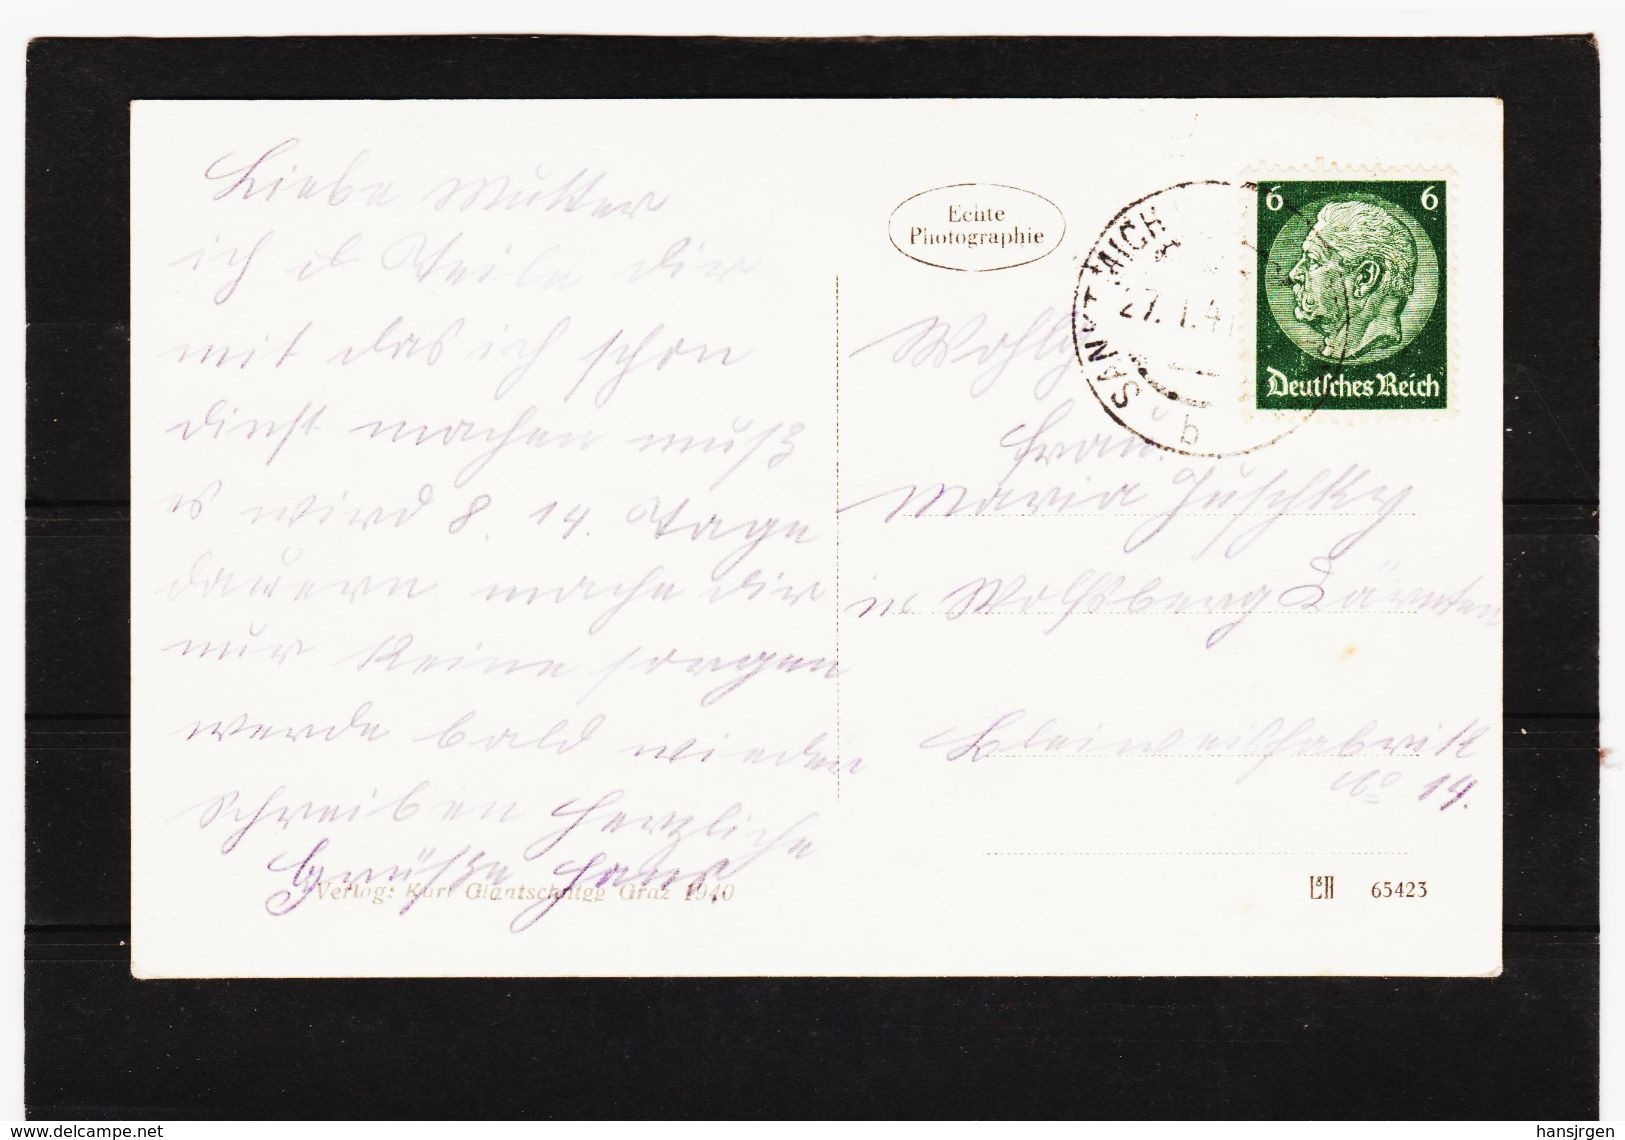 Liebe Mutter
ich Teile dir
mit das ich schon
dinst machen muß
es wird 8. 14. Tage
dauern mache dir
nur keine sorgen
werde bald wieder
schreiben herzliche
Grüße Hans
Verlag: Kurt Glantschnigg Graz 1940
Echte
Photographie
SANKT MICH
27. 1. 41
b
6 6
Deutsches Reich
Wohlg
Frau
Maria Juschky
in Wolfsberg Kärnten
Bleiweisfabrik
No 19.
65423
www.delcampe.net
hansjrgen